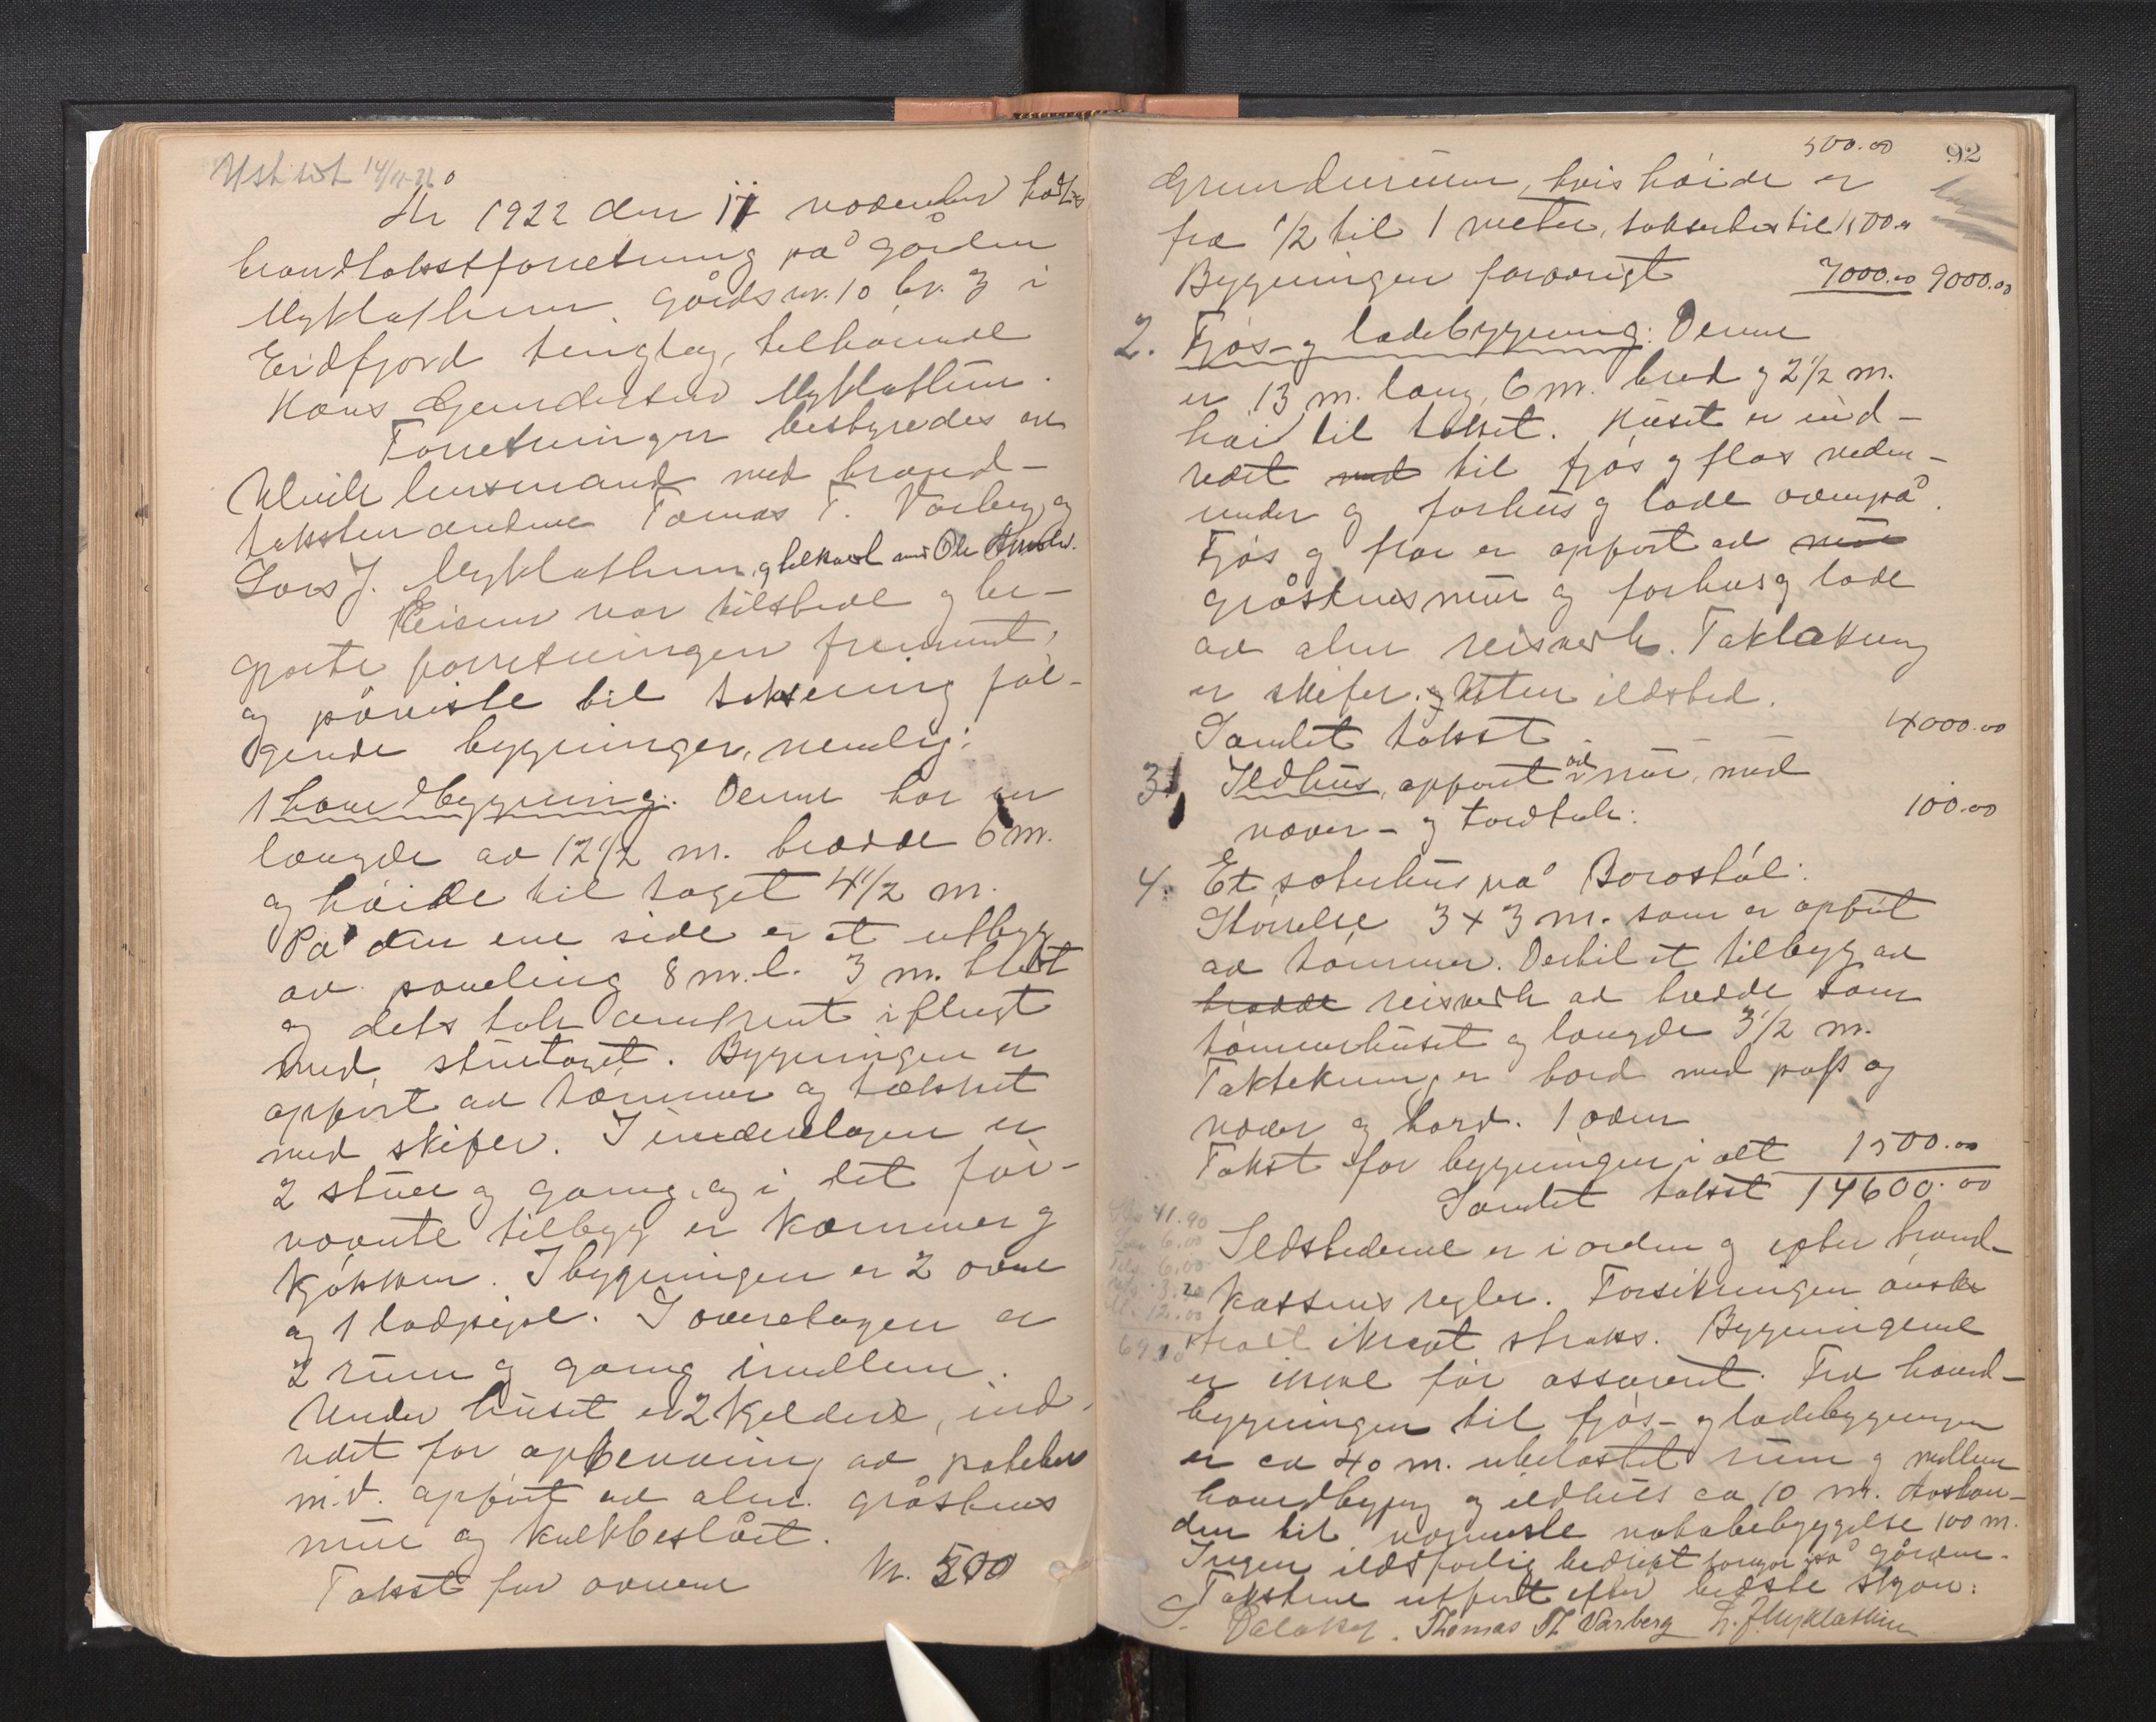 Utskr. 14/4-26
År 1922 den 17 november holdtes
brandtakstforretning på gården
Myklathun, gårdsnr. 10 br. 3 i
Eidfjord tinglag, tilhørende
Hans Gundersen Myklathun.
Forretningen bestyredes av
Ulvik lensmand med brand-
takstmændene Tomas T. Varberg og
Lars J. Myklathun, og tilkaldt av Ole
Eieren var tilstede og be-
gjærte forretningen fremmet,
og påviste til taksering føl-
gende bygninger, nemlig:
1 hovedbygning: Denne har en
længde av 12 1/2 m. bredde 6 m.
og høide til taget 4 1/2 m.
På den ene side er et utbygg
av paneling 8 m. l. 3 m. bredt
og dets tak omtrent i flugt
med stuetaget. Bygningen er
opført av tømmer og tækket
med skifer. I underetagen er
2 stuer og gang, og i det før-
nævnte tilbygg er kammer og
kjøkken. I bygningen er 2 ovne
og 1 ladpipe. I overetagen er
2 rum og gang imellem.
Under huset er 2 kjeldere, ind-
redet for opbevaring av poteter
m.v. opført av alm. gråstens
mur og kalkbeslået.
Takst for ovnene kr. 500
92
500.00
Grundmuren, hvis høide er
fra 1/2 til 1 meter, takseres til 1500.00
Bygningen forøvrigt 7000.00 9000.00
2. Fjøs- og ladebygning: Denne
er 13 m. lang, 6 m. bred og 2 1/2 m.
høi til taket. Huset er ind-
redet med til fjøs og flor neden-
under og forhus og lade ovenpå.
Fjøs og flor er opført av mur
gråstensmur og forhus og lade
av alm reisverk. Taktækning
er skifer. og Uten ildsted.
Samlet takst 4000.00
3. Ildhus, opført av mur, med
næver- og torvtak: 100.00
4. Et sæterhus på Borostøl:
Størrelse 3 x 3 m. som er opført
av tømmer. Dertil et tilbygg av
bredde reisverk av bredde som
tømmerhuset og længde 3 1/2 m.
Taktekning er bord med paff og
næver og bord. 1 ovn
Takst for bygningen i alt 1500.00
Samlet takst 14600.00
41.90
6.00
6.00
3.20
12.00
69.10
Ildstederne er i orden og efter brand-
kassens regler. Forsikringen ønskes
trætt ikraft straks. Bygningene
er ikke før assurert. Fra hoved-
bygningen til fjøs- og ladebygningen
er ca 40 m. ubelastet rum og mellem
hovedbygng og ildhus ca 10 m. Avstan-
den til nærmeste nabobebyggelse 100 m.
Ingen ildsfarlig bedrift foregår på gården.
Takstene utført efter bedste skjøn:
Thomas T. Varberg L. J. Myklathun